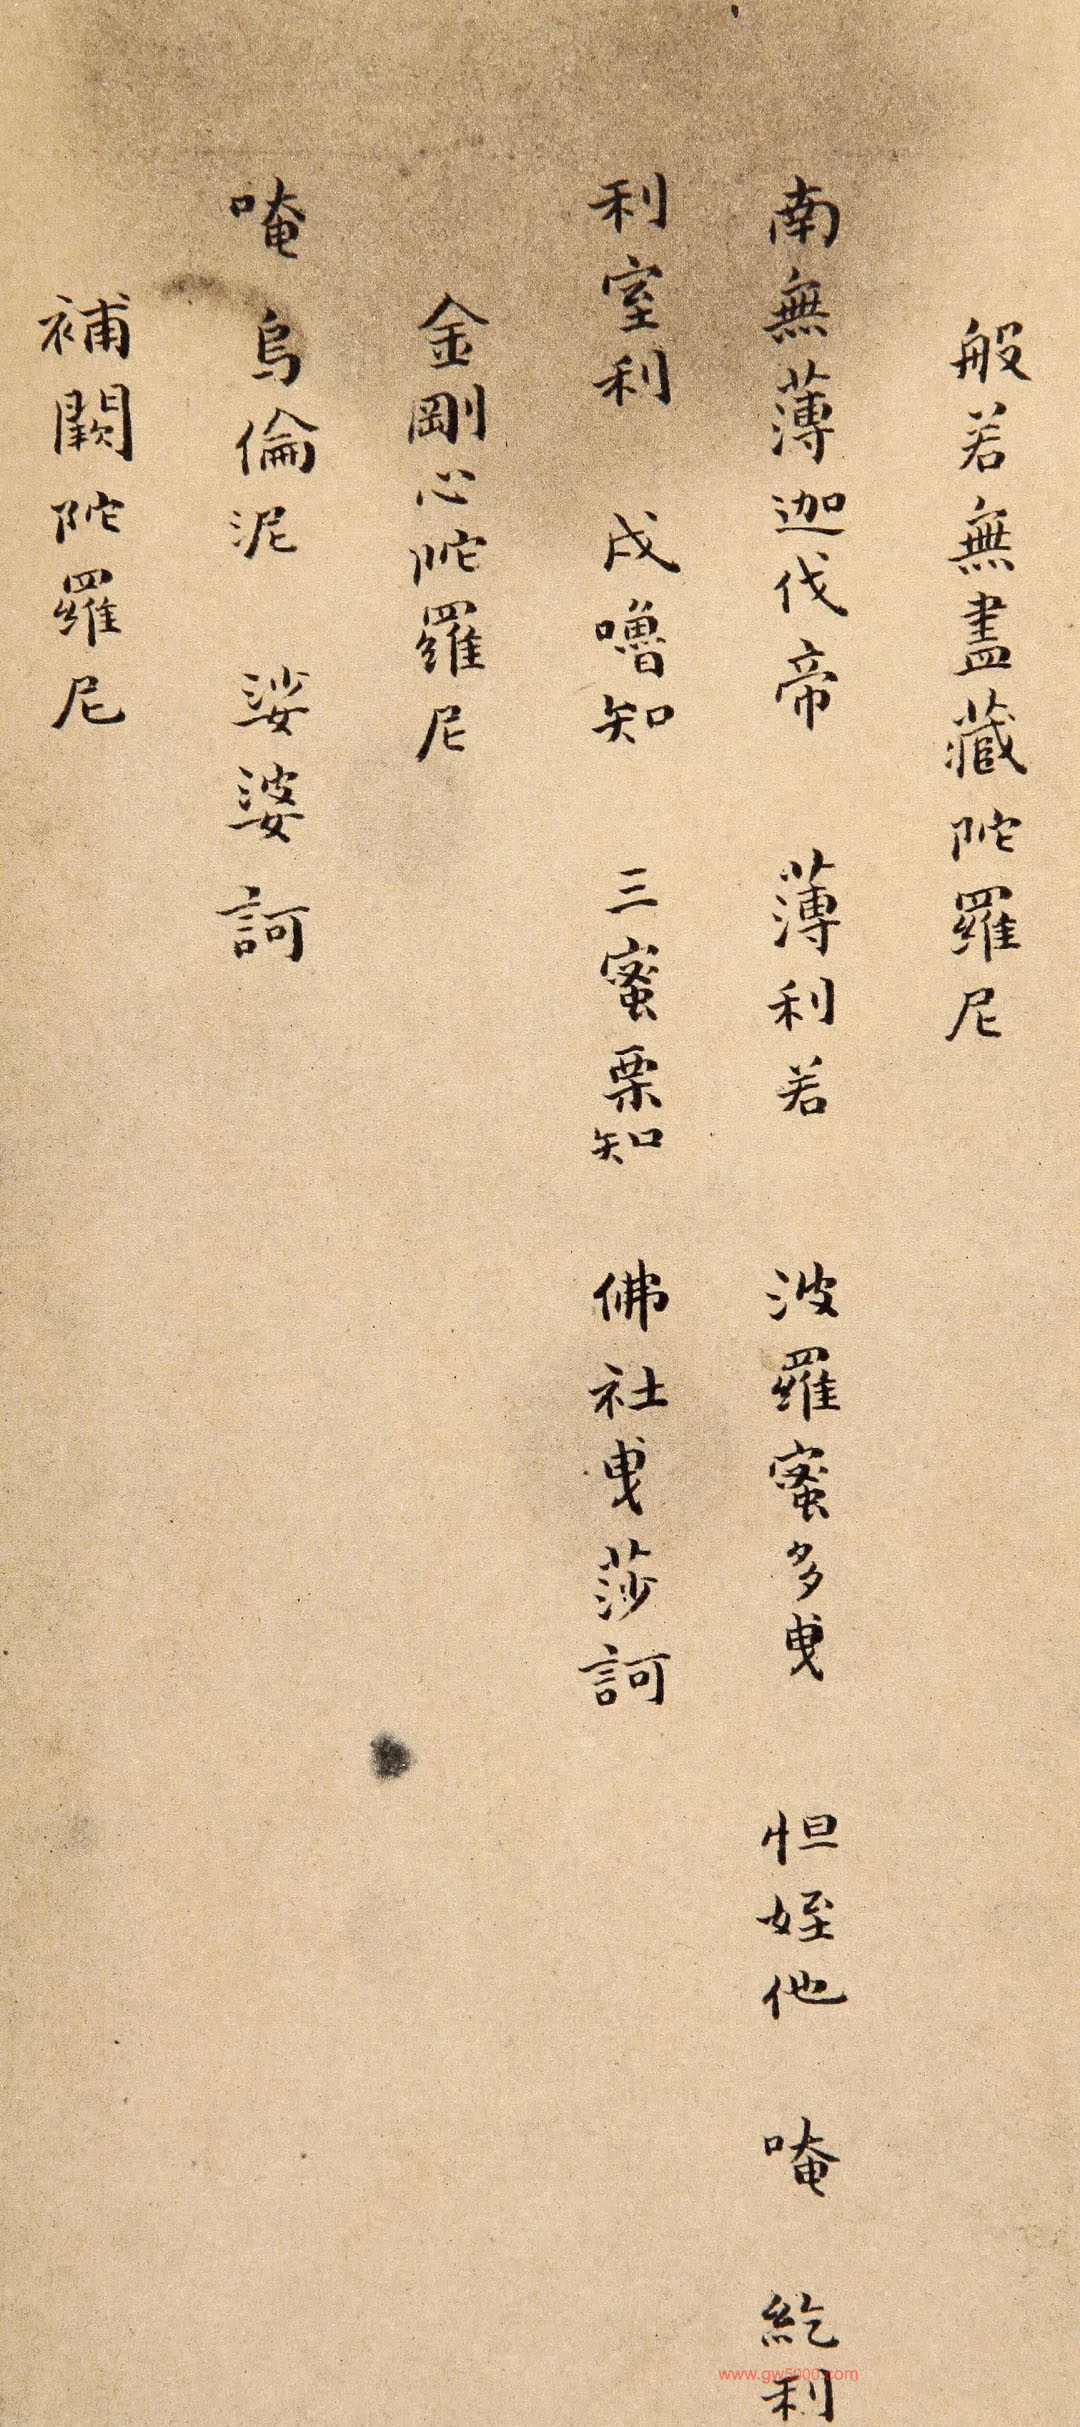 般若無盡藏陀羅尼
南無薄迦伐帝 薄利若 波羅蜜多曳 怛姪他 唵 紇利
利室利 戍嚕知 三蜜栗知 佛社曳莎訶
金剛心陀羅尼
唵 烏倫泥 娑婆訶
補闕陀羅尼
www.gw5000.com